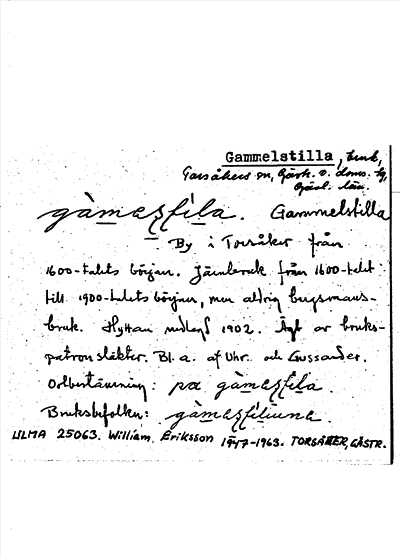 Gammelstilla, bruk,
Torsåkers sn, Gästr. ö. doms. hg,
Gävl. län.
gàmesstila. Gammelstilla
By i Torsåker från
1600-talets början. Järnbruk från 1600-talet
till 1900-talets början, men aldrig bergsmans-
bruk. Hyttan nedlagd 1902. Ägt av bruks-
patronsläkter. Bl. a. af Uhr. och Gussander.
Ortbestämning: pa gàmesstila.
Bruksbefolkn:
ULMA 25063. William Eriksson 1947-1963. TORSÅKER, GÄSTR.